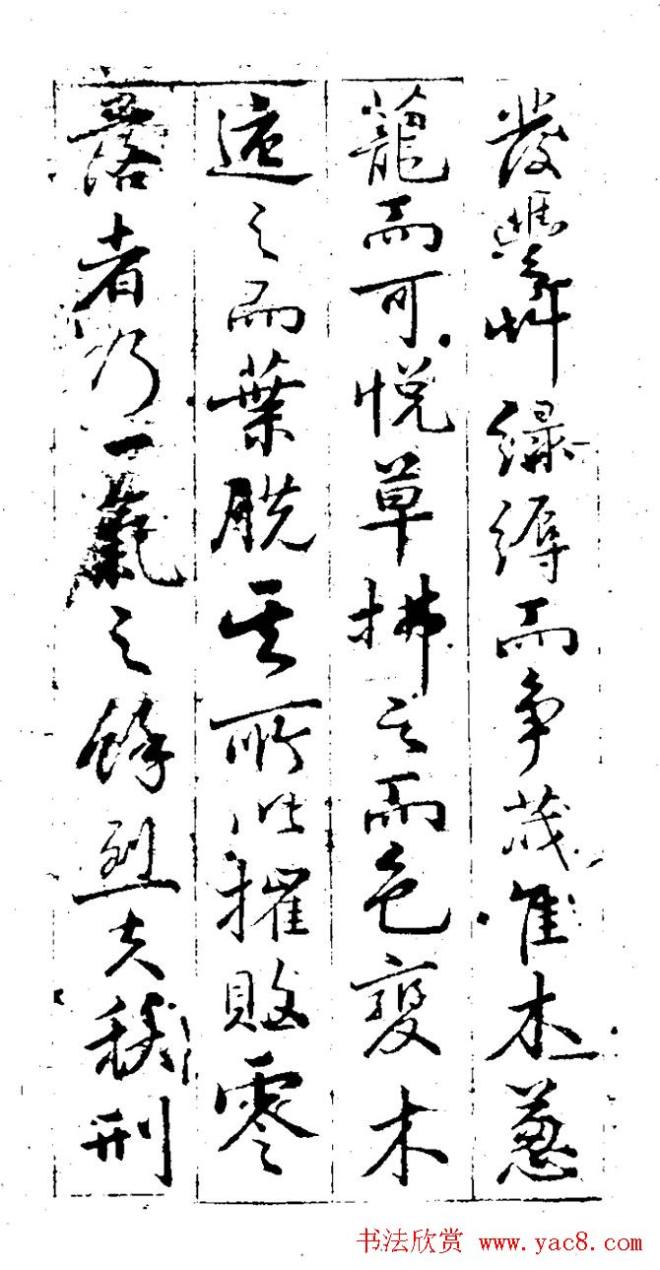 發豐艸綠縟而爭茂佳木蔥
蘢而可悅草拂之而色變木
遭之而葉脫其所以摧敗零
落者乃一氣之餘烈夫秋刑
书法欣赏 www.yac8.com